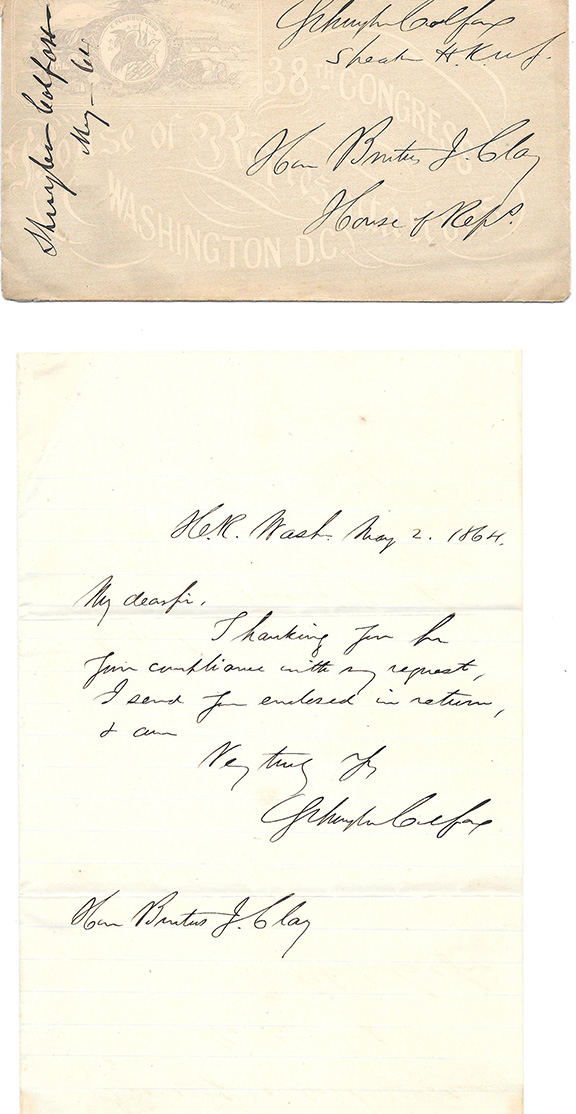 Schuyler Colfax
Speaker H. Reps.
Schuyler Colfax
May 64
38TH CONGRESS
House of Representatives
WASHINGTON D.C.
Hon Brutus J. Clay
House of Reps.
H.R. Wash. May 2. 1864.
My dear sir,
Thanking you for
your compliance with my request,
I send you enclosed in return,
& am
Very truly Yrs
Schuyler Colfax
Hon Brutus J. Clay